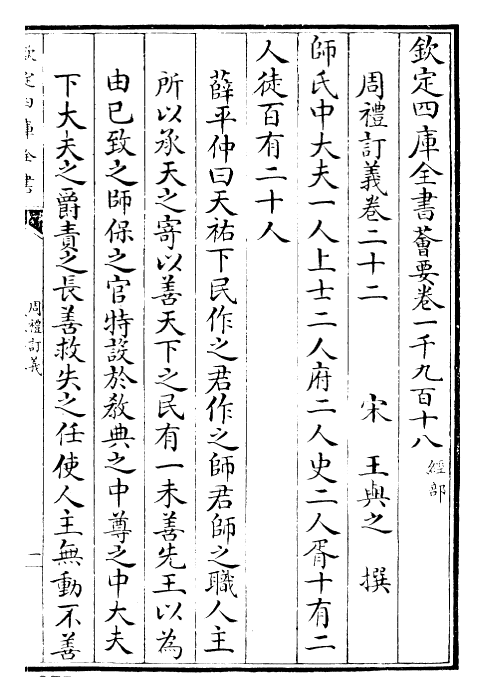 欽定四庫全書薈要卷一千九百十八 經部
周禮訂義卷二十二 宋 王與之 撰
師氏中大夫一人上士二人府二人史二人胥十有二
人徒百有二十人
薛平仲曰天祐下民作之君作之師君師之職人主
所以承天之寄以善天下之民有一未善先王以為
由已致之師保之官特設於教典之中尊之中大夫
下大夫之爵責之長善救失之任使人主無動不善
欽定四庫全書
周禮訂義
一